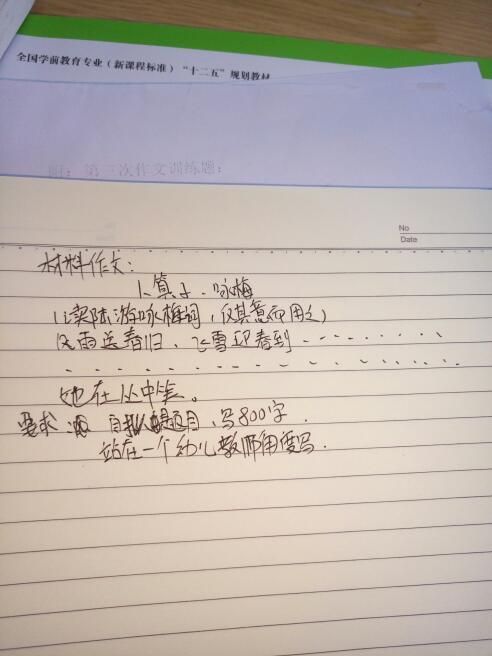 全国学前教育专业（新课程标准）“十二五”规划教材
附：第三次作文训练题：
No
Date
材料作文：
卜算子．咏梅
（读陆游咏梅词，仅其意而用之）
风雨送春归，飞雪迎春到．．．．．．．．．
．．．．．．．．．．．．．．．．．
她在丛中笑。
要求：自拟题目，写800字．
站在一个幼儿教师角度写．